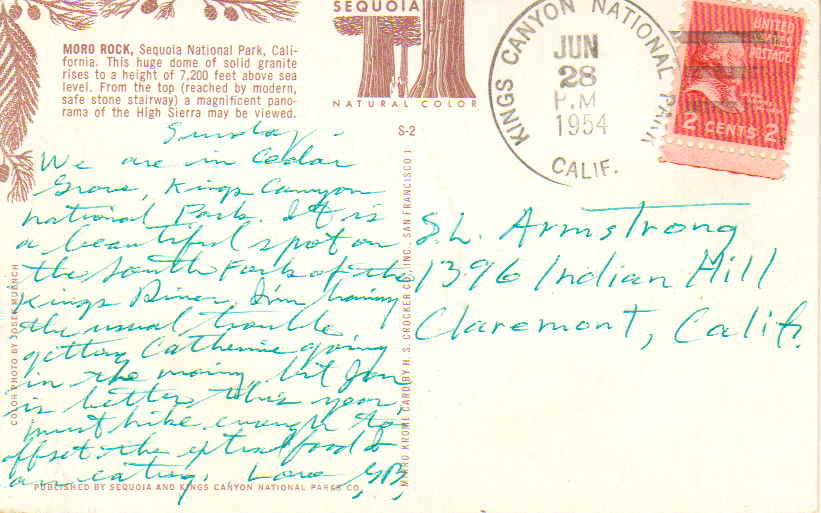 SEQUOIA
NATURAL COLOR
MORO ROCK, Sequoia National Park, Cali-
fornia. This huge dome of solid granite
rises to a height of 7,200 feet above sea
level. From the top (reached by modern,
safe stone stairway) a magnificent pano-
rama of the High Sierra may be viewed.
S-2
KINGS CANYON NATIONAL PARK
JUN
28
P.M
1954
CALIF.
UNITED
STATES
POSTAGE
2 CENTS 2
Sunday.
We are in Cedar
Grove, Kings Canyon
National Park. It is
a beautiful spot on
the South Fork of the
Kings River. I'm having
the usual trouble
getting Catherine going
in the morning but Jon
is better this year,
must hike enough to
offset the extra food I
am eating. Love
S.L. Armstrong
1396 Indian Hill
Claremont, Calif.
COLOR PHOTO BY JOSEF MUENCH
MIRRO KROME CARD BY H. S. CROCKER CO., INC. SAN FRANCISCO 1
PUBLISHED BY SEQUOIA AND KINGS CANYON NATIONAL PARKS CO.